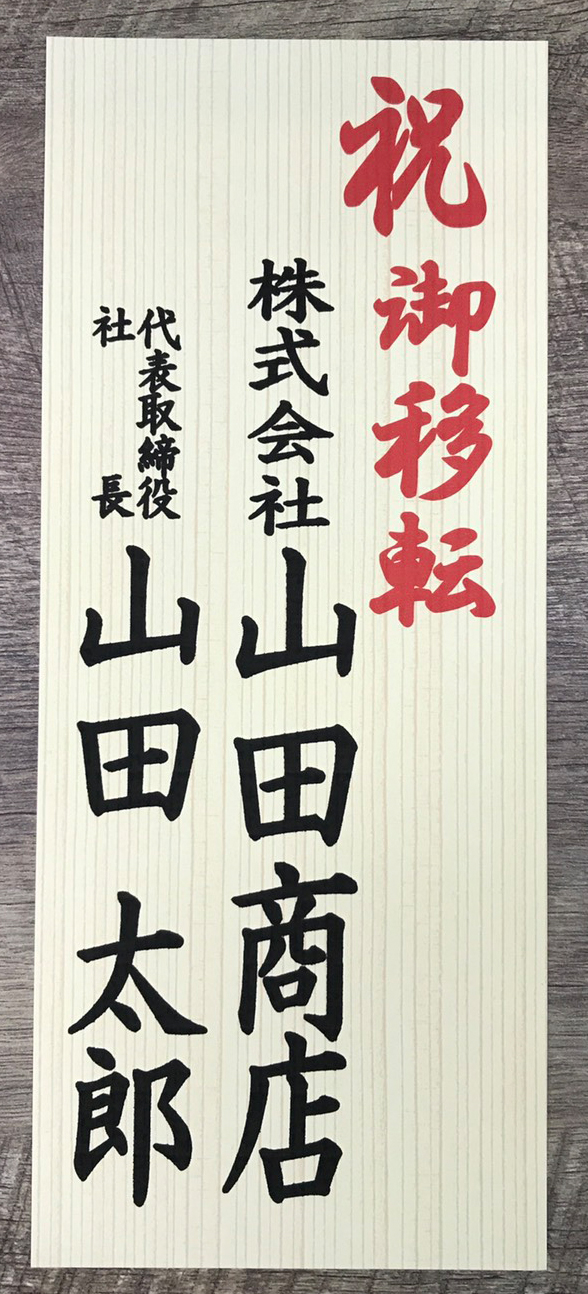 祝御移転
株式会社山田商店
代表取締役
社長
山田太郎